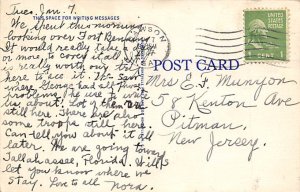 Tues, Jan. 7.
THIS SPACE FOR WRITING MESSAGES
We spent this morning
looking over Fort Benning.
It would really take a day
or mor, to cover it all but
really worth any
here to see it. The saw
mley. George had all those
buildings he use to write
us about. Lot of them are
still here. There are also
some troups still here.
Can tell you about it all
later. We are going toward
Tallahassee, Florida. Will
let you know where we
stay. Love to all Nora.
DAWSON
POST CARD
UNITED STATES
POSTAGE
1 CENT 1
Mrs E. F. Munyon
58 Kenton Ave
Pitman,
New Jersey.